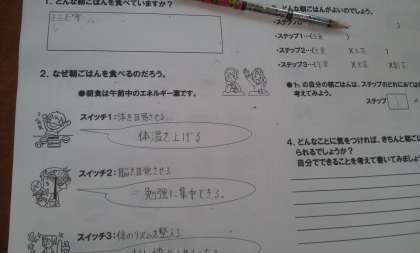 1. どんな朝ごはんを食べていますか?
2. なぜ朝ごはんを食べるのだろう。
●朝食は午前中のエネルギー源です。
スイッチ1:体を目覚させる
体温を上げる
スイッチ2:脳を目覚させる
勉強に集中できる。
スイッチ3:体のリズムを整える
な朝ごはんがよいのでしょう。
ステップ1…(主食 )
ステップ2…(主食 )(主菜 )
ステップ3…(主食 )(主菜 )(
●1. の自分の朝ごはんは、ステップのどれにあては
考えてみよう。
ステップ
4. どんなことに気をつければ、きちんと朝ご
られるでしょうか?
自分でできることを考えて書いてみましょ